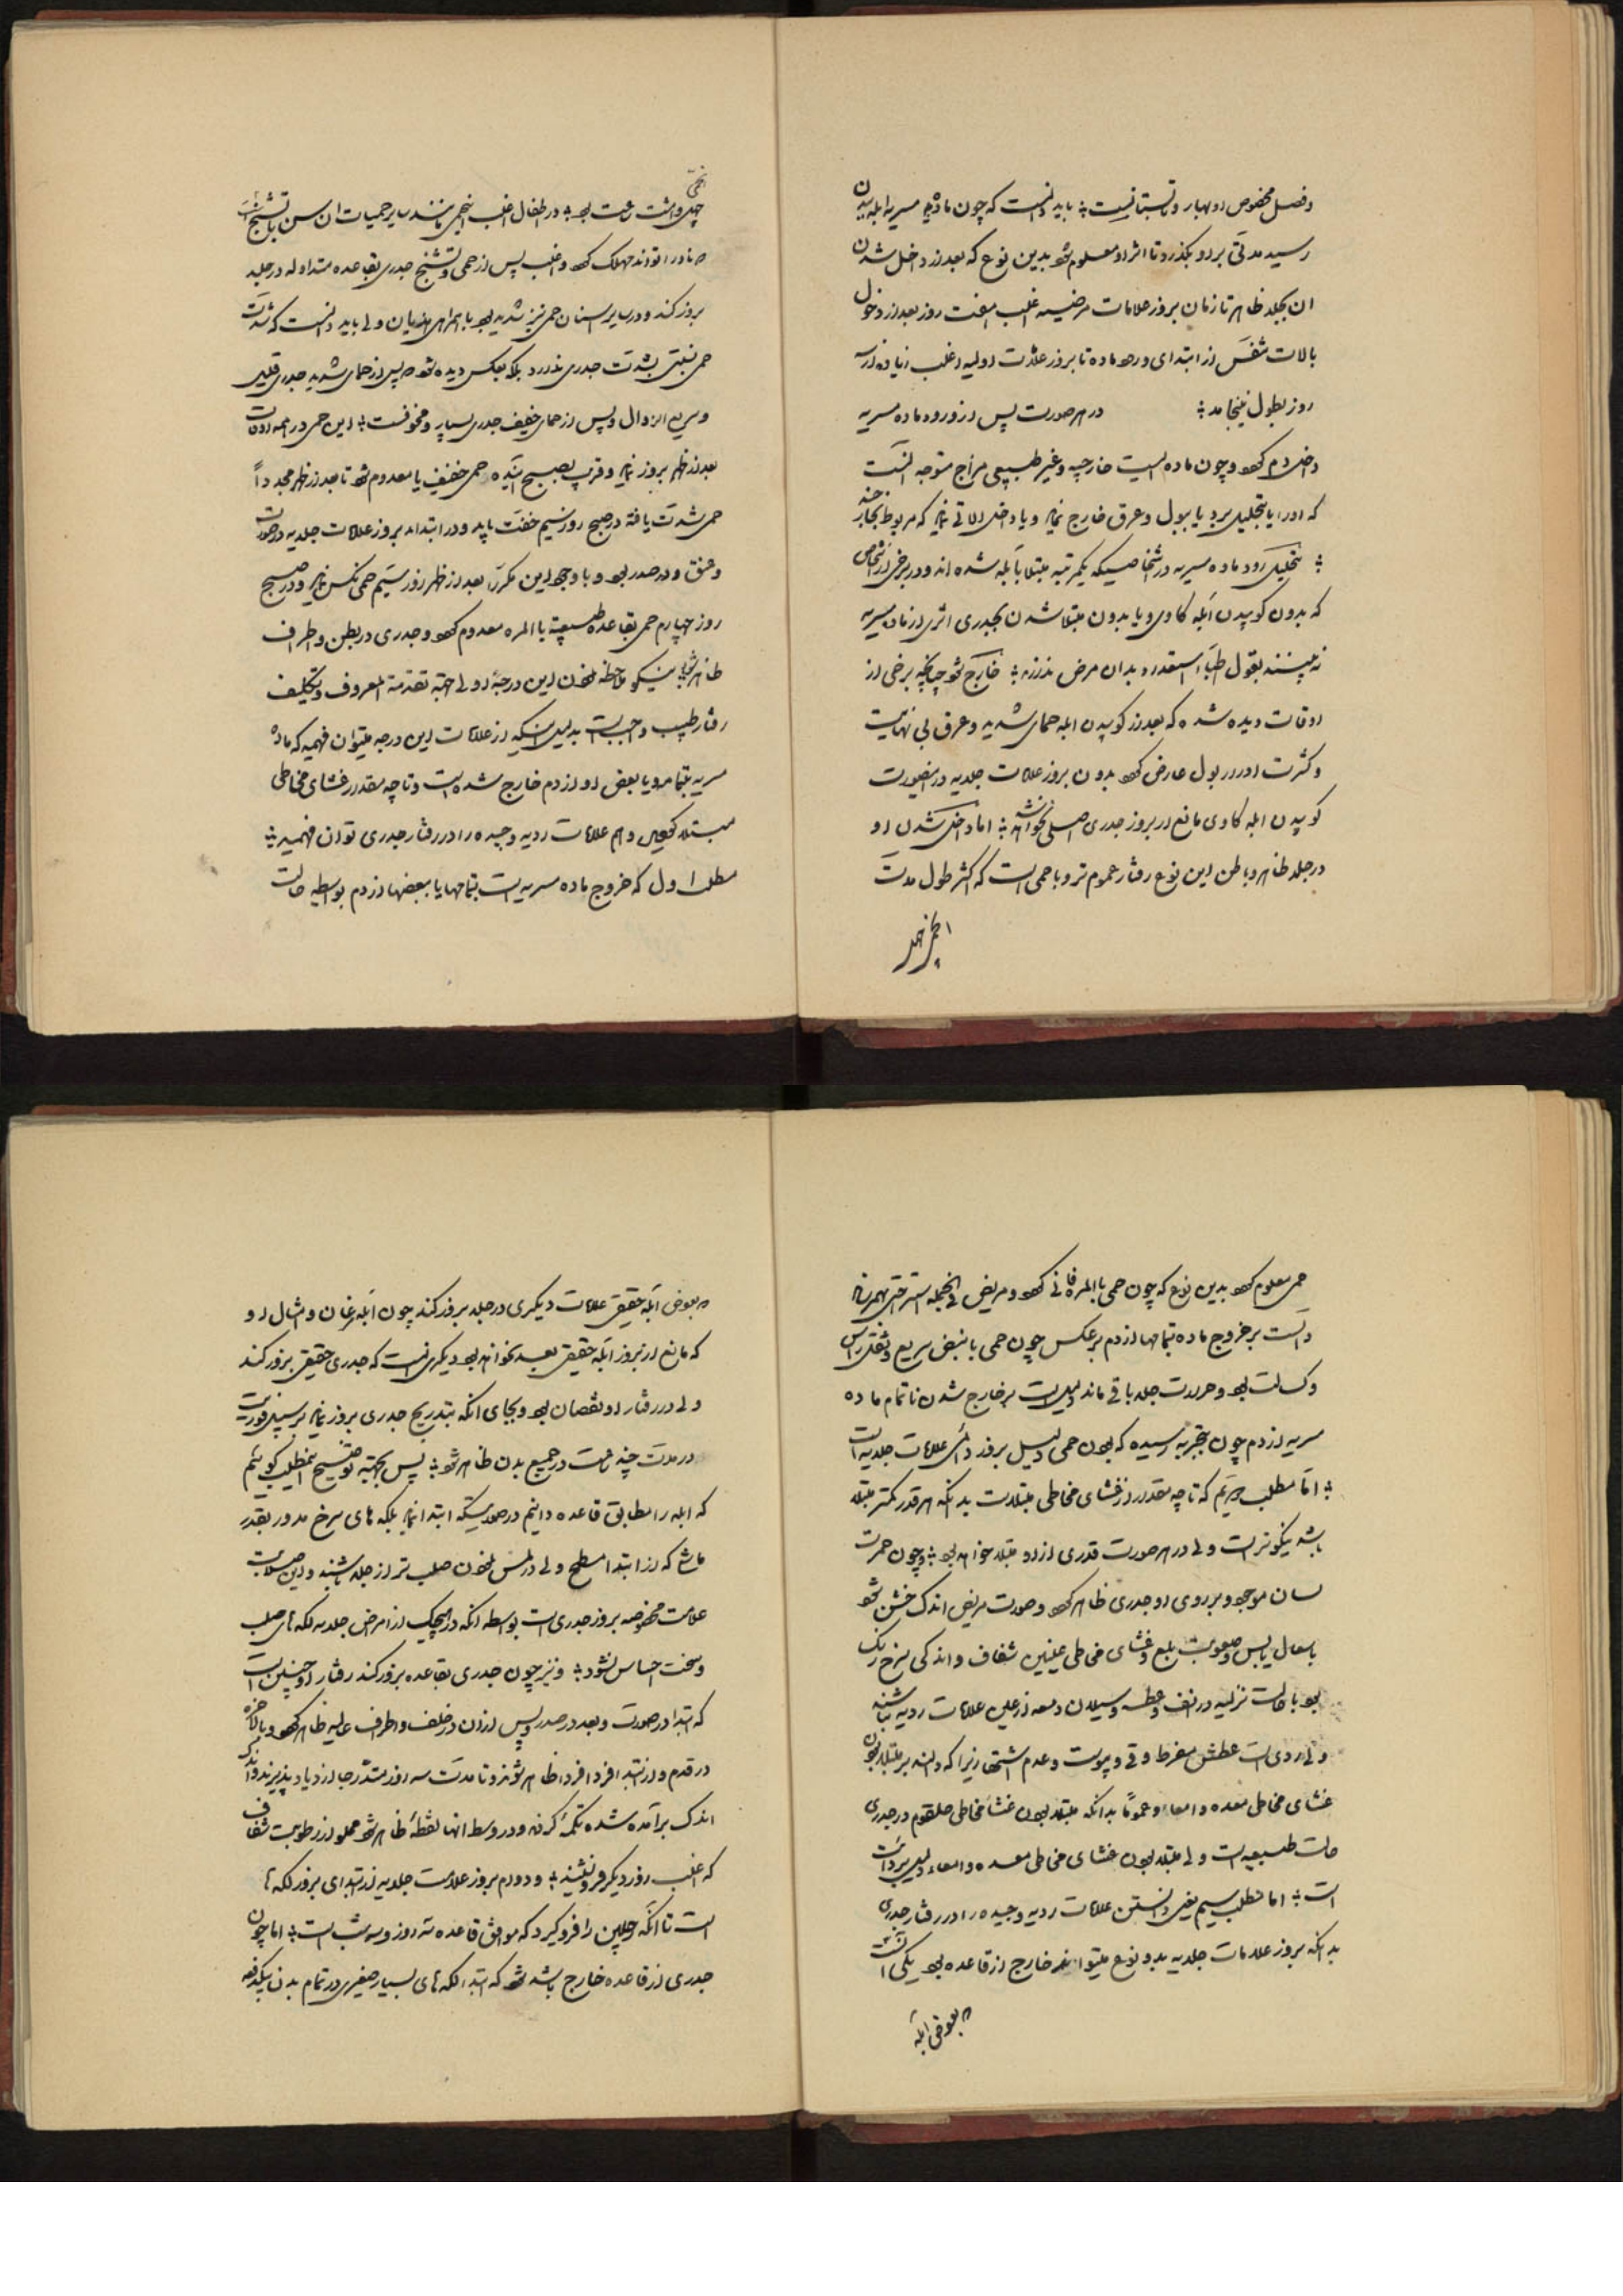 و فصل مخصوص او بهار و تابستانست ؛ باید دانست که چون مادهٔ مسریه ابله ببدن
رسید مدتی بر او بگذرد تا اثر او معلوم شود بدین نوع که بعد از داخل شدن
ان بجلد ظاهر تا زمان بروز علامات مرضیه اغلب هفت روز بعد از دخول
بالات تنفس از ابتدای ورود ماده تا بروز علامت اولیه اغلب زیاده از سه
روز بطول نینجامد ؛ در هر صورت پس از ورود ماده مسریه
داخل دم شود و چون ماده ایست خارجیه و غیر طبیعی مزاج متوجه انست
که او را یا بتحلیل برد یا ببول و عرق خارج نماید و یا داخل الاتی نماید که مربوط بخارجند
؛ بتحلیل رود ماده مسریه در اشخاصیکه یکمرتبه مبتلا بآبله شده اند و در برخی از اشخاص
که بدون کوبیدن آبله کاوی و یا بدون مبتلا شدن بجدری اثری از ماده مسریه
نه بینند بقول اطباء استعداد بدان مرض ندارند ؛ خارج شود چنانچه برخی از
اوقات دیده شده که بعد از کوبیدن ابله حمای شدید و عرق بی نهایت
و کثرت ادرار بول عارض شود بدون بروز علامات جلدیه در اینصورت
کوبیدن ابله کاوی مانع از بروز جدری اصلی نخواهد شد ؛ اما داخل شدن او
در جلد ظاهر و باطن این نوع رفتار عموم تر و با حمی است که اکثر طول مدت
ان حمی
چهل و هشت ساعت بود ؛ در اطفال اغلب این حمی مانند سایر حمیات ان سن با تشنج است
که نادرا تواند مهلک شود و اغلب پس از حمی و تشنج جدری بقاعده متداوله در جلد
بروز کند و در سایر اسنان حمی نیز شدید بود با همراهی هذیان ولی باید دانست که شدت
حمی نسبتی بشدت جدری ندارد بلکه بعکس دیده شود که پس از حمای شدید جدری قلیل
و سریع الزوال و پس از حمای خفیف جدری بسیار و مخوفست ؛ این حمی در همه اوقات
بعد از ظهر بروز نماید و قریب بصبح آینده حمی خفیف یا معدوم شود تا بعد از ظهر مجدداً
حمی شدت یافته در صبح روز سیم خفت یابد و در ابتداء بروز علامات جلدیه در صورت
و عنق و صدر بود و با وجود این مکرراً بعد از ظهر روز سیم حمی نکس نماید و در صبح
روز چهارم حمی بقاعده طبیعیه بالمره معدوم شود و جدری در بطن و اطراف
ظاهر شود نیکو ملاحظه نمودن این درجهٔ اولی بجهة تقدمة المعروف و تکلیف
رفتار طبیب واجبست بدلیل اینکه از علامات این درجه میتوان فهمید که مادهٔ
مسریه بتمامه و یا بعض او از دم خارج شده است و تا چه مقدار غشای مخاطی
مبتلا کردیده و هم علامات ردیه و جیده را در رفتار جدری توان فهمید ؛
مطلب اول که خروج ماده مسریه است بتمامها یا ببعضها از دم بواسطه حالت
حمی معلوم شود بدین نوع که چون حمی بالمره فانی شود و مریض فی الجمله استراحتی بهم رساند
دالست بر خروج ماده بتمامها از دم بر عکس چون حمی با نبض سریع و ثقل راس
و کسالت بود و حرارت جلد باقی ماند دلیل است بر خارج شدن ناتمام ماده
مسریه از دم چون بتجربه رسیده که بودن حمی دلیل بروز دائمی علامات جلدیه است
؛ اما مطلب دویم که تا چه مقدار از غشای مخاطی مبتلاست بدانکه هر قدر کمتر مبتلا
باشد نیکوتر است ولی در هر صورت قدری از او مبتلا خواهد بود ؛ و چون حمرت
لسان موجود و بر روی او جدری ظاهر شود و صورت مریض اندک خشن شود
با سعال یابس و صعوبت بلع و غشای مخاطی عینین شفاف و اندکی سرخ رنک
بود با حالت نزلیه در انف و عطسه و سیلان دمعه از عین علامات ردیه نباشند
ولی ردی است عطش مفرط و قی و یبوست و عدم اشتها زیرا که دالند بر مبتلا بودن
غشای مخاطی معده و امعاء و عموماً بدانکه مبتلا بودن غشاء مخاطی حلقوم در جدری
حالت طبیعیه است ولی مبتلا بودن غشای مخاطی معده و امعاء دلیل بر رداءت
است ؛ اما مطلب سیم یعنی دانستن علامات ردیه و جیده را در رفتار جدری
بدانکه بروز علامات جلدیه بدو نوع میتواند خارج از قاعده بود یکی آنست
که بعوض آبله
که بعوض آبله حقیقی علامات دیگری در جلد بروز کند چون آبله مرغان و امثال او
که مانع از بروز آبله حقیقی بعد نخواهد بود دیگری انست که جدری حقیقی بروز کند
ولی در رفتار او نقصان بود و بجای انکه بتدریج جدری بروز نماید بر سبیل فوریت
در مدت چند ساعت در جمیع بدن ظاهر شود ؛ پس بجهة توضیح این مطلب کوئیم
که ابله را مطابق قاعده دانیم در صورتیکه ابتدا نماید بلکه های سرخ مدور بقدر
ماش که از ابتدا مسطح ولی در لمس نمودن صلب تر از جلد باشند و این صلابت
علامت مخصوصه بروز جدری است بواسطه انکه در هیچیک از امراض جلدیه لکه های صلب
و سخت احساس نشود ؛ و نیز چون جدری بقاعده بروز کند رفتار او چنین است
که ابتدا در صورت و بعد در صدر و پس از ان در خلف و اطراف عالیه ظاهر شود و بالاخره
در قدم و از ابتدا فرداً فرداً ظاهر شوند و تا مدت سه روز متدرجاً ازدیاد پذیرند و اندک
اندک برآمده شده تکمه کردند و در وسط انها نقطهٔ ظاهر شود مملو از رطوبت شفاف
که اغلب روز دیگر فرو نشیند ؛ و دوام بروز علامت جلدیه از ابتدای بروز لکه ها
است تا آنکه رجلین را فرو کیرد که موافق قاعده سه روز و سه شب است ؛ اما چون
جدری از قاعده خارج باشد شود که ابتدا لکه های بسیار صغیری در تمام بدن بیکدفعه